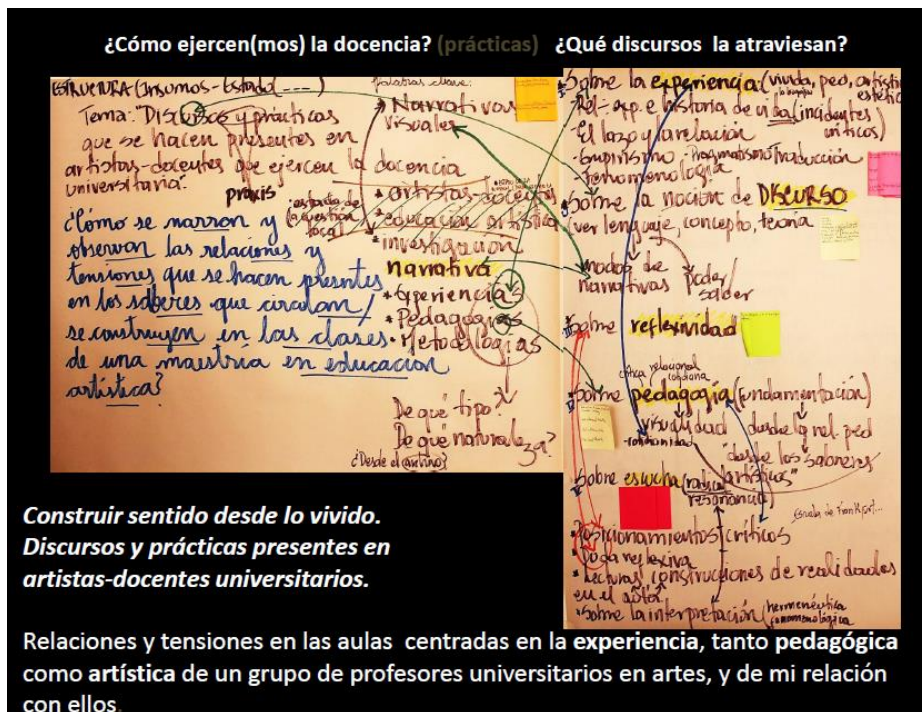 ¿Cómo ejercen(mos) la docencia? (prácticas) ¿Qué discursos la atraviesan?
ESTRUCTURA (Insumos - Estado (----)
Tema: "Discursos y prácticas
que se hacen presentes en
artistas-docentes que ejercen la docencia
universitaria".
praxis
¿Cómo se narran y
observan las relaciones y
tensiones que se hacen presentes
en los saberes que circulan /
se construyen en las clases
de una maestría en educación
artística?
Palabras clave:
* Narrativas
visuales
estado de
la cuestión
local
* artistas-docentes
* educación artística
* investigación
narrativa
* Experiencias
* Pedagogías
* Metodologías
De qué tipo?
De qué naturaleza?
¿Desde el
Sobre la experiencia (vivida, ped, artística
estética
Rel- exp. e historia de vida (incidentes
críticos)
- El lazo y la relación
- Empirismo Pragmatismo Traducción
- Fenomenología
Sobre la noción de DISCURSO
(ver lenguaje, concepto, teoría
modos de
narrativas poder/
saber
Sobre reflexividad
crítica relacional
Sobre pedagogía (fundamentación)
visualidad desde la rel. ped
"desde los saberes
artísticos"
Sobre escucha (radical
resonancia)
Escuela de Frankfurt...
* Posicionamientos críticos
* reflexiva
* Lecturas, construcciones de realidades
en el aula
* Sobre la interpretación (hermenéutica
fenomenológica
Construir sentido desde lo vivido.
Discursos y prácticas presentes en
artistas-docentes universitarios.
Relaciones y tensiones en las aulas centradas en la experiencia, tanto pedagógica
como artística de un grupo de profesores universitarios en artes, y de mi relación
con ellos.